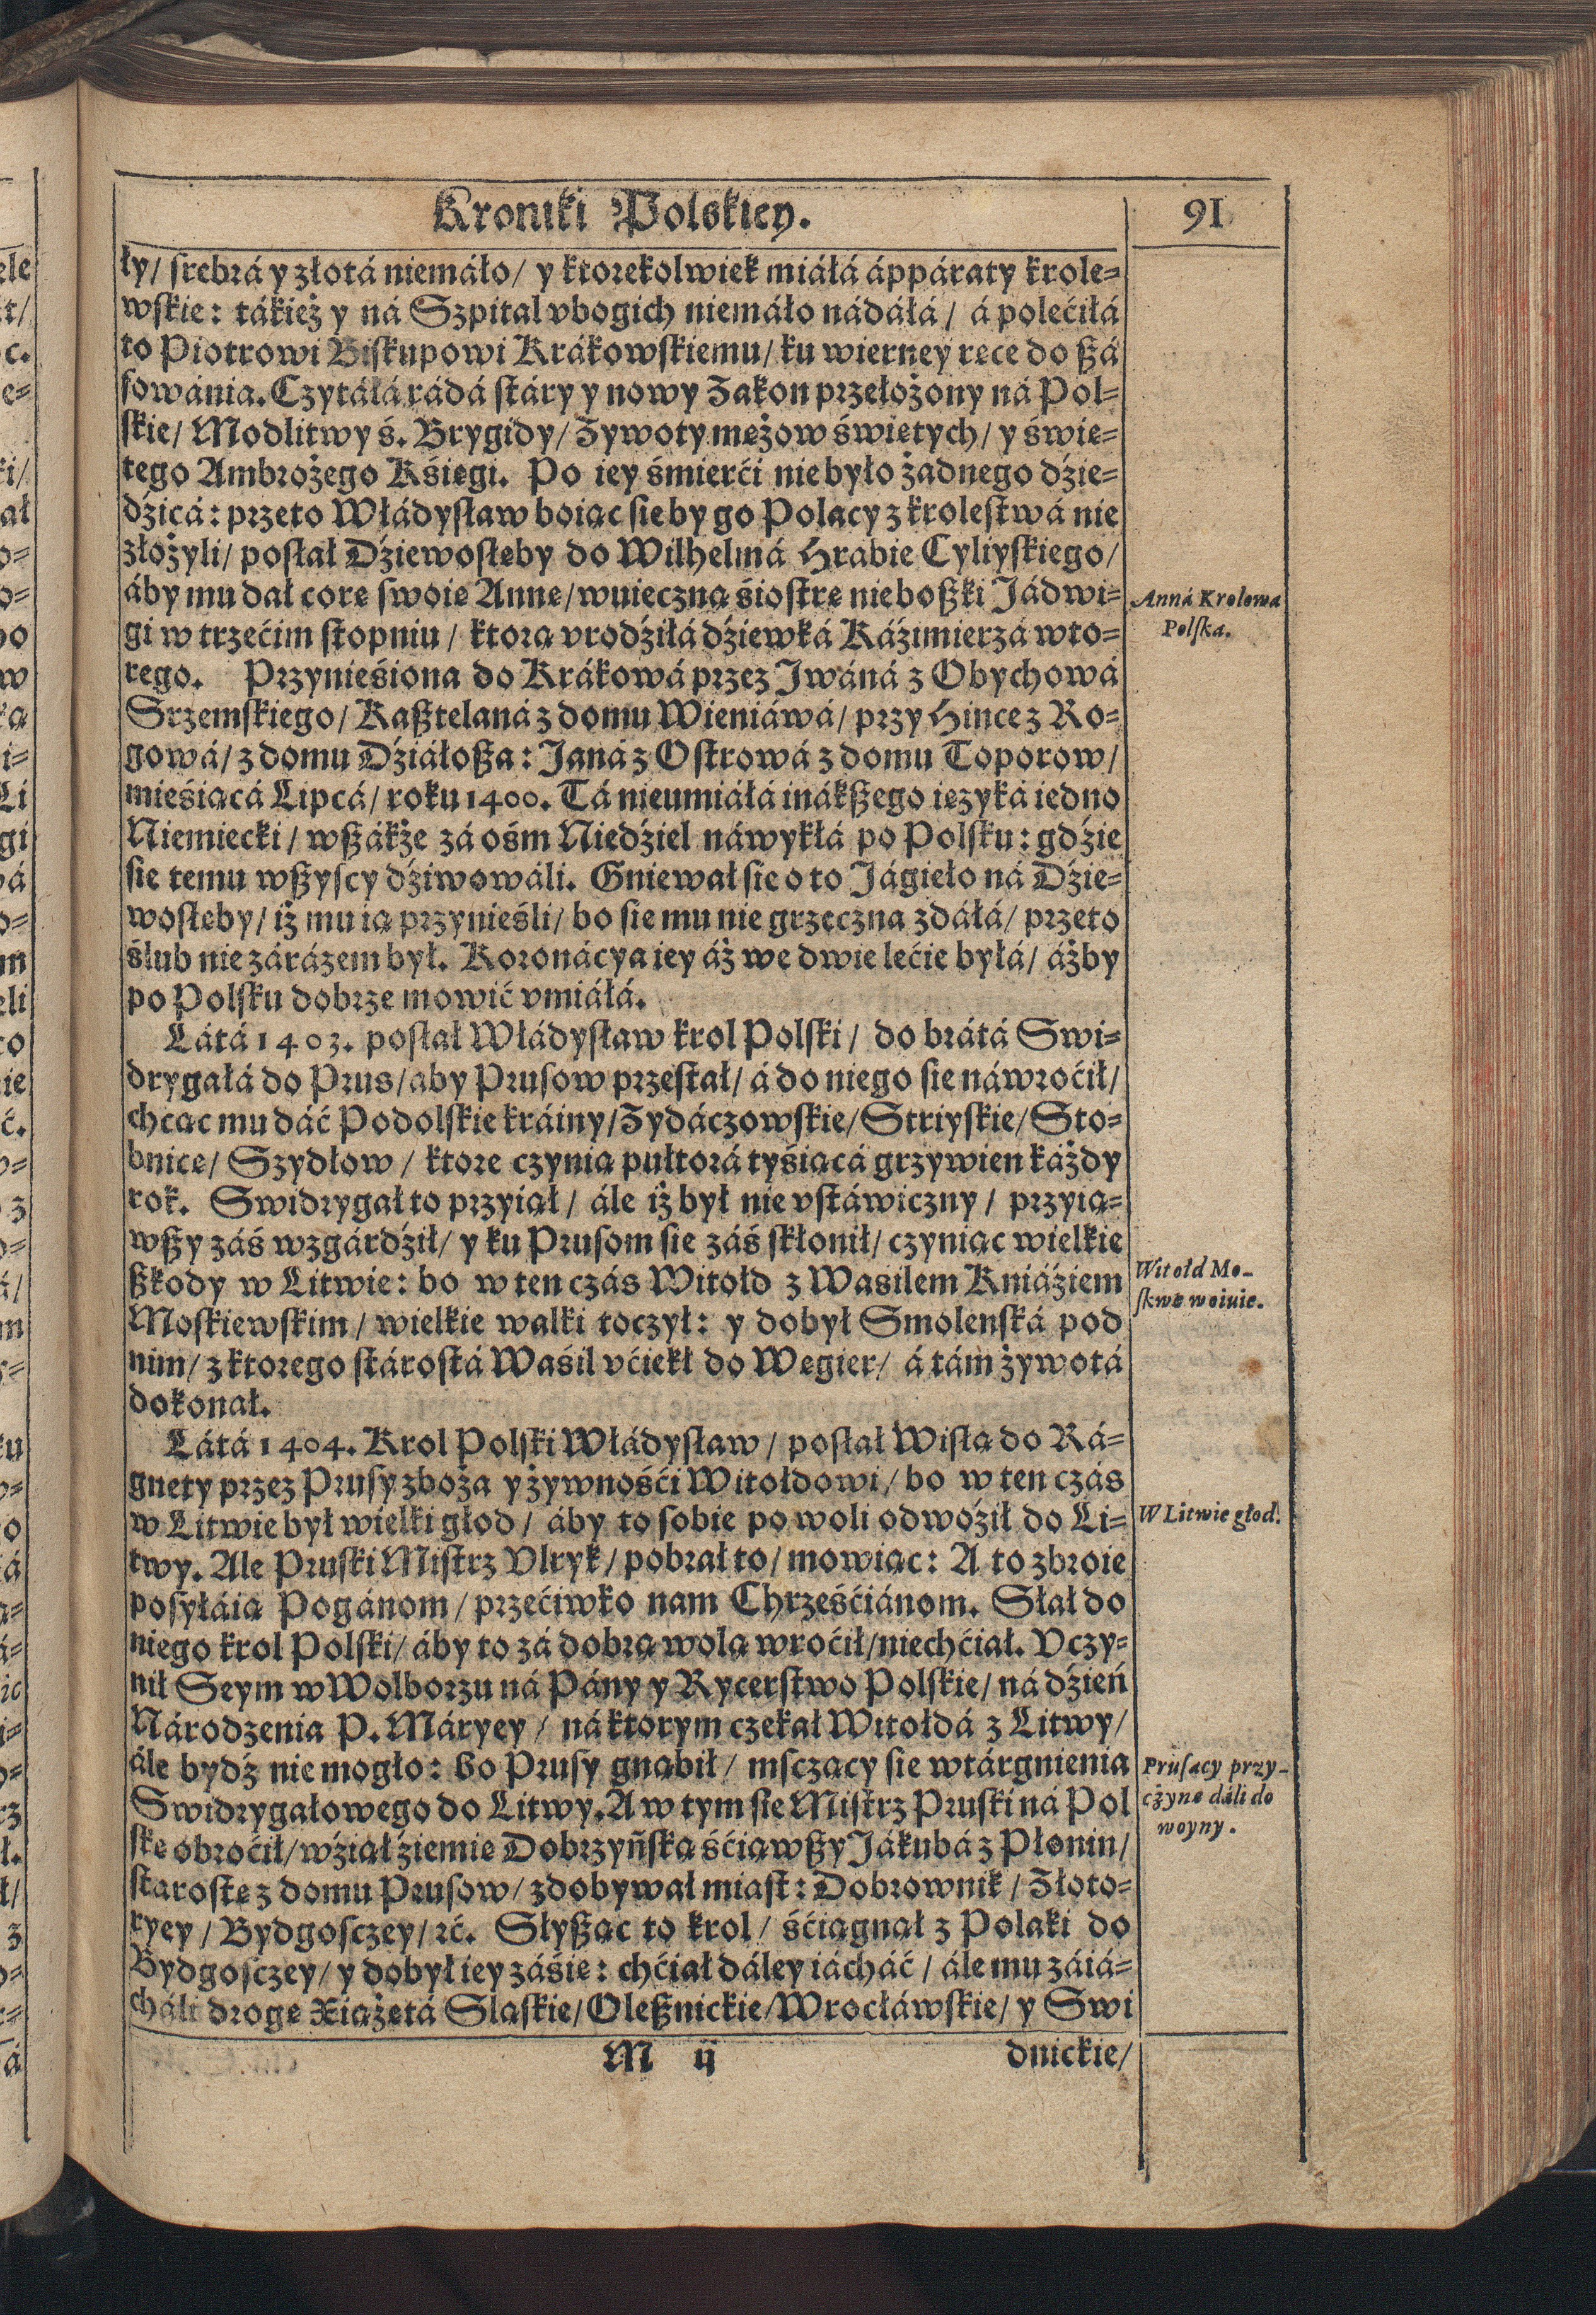 Kroniki Polskiey.
91
ły/ srebrá y złotá niemáło/ y ktorekolwiek miáłá áppáraty krole=
wskie: tákież y ná Szpital vbogich niemáło nádáłá/ á polećiłá
to Piotrowi Biskupowi Krákowskiemu/ ku wierney ręce do ßá
fowánia. Czytáłá rádá stáry y nowy Zakon przełożony ná Pol=
skie/ Modlitwy ś. Brygidy/ Zywoty mężow świętych/ y świę=
tego Ambrożego Kśięgi. Po iey śmierći nie było żadnego dźie=
dźicá: przeto Włádysław boiąc się by go Polacy z krolestwá nie
złożyli/ posłał Dźiewosłęby do Wilhelmá Hrabie Cyliyskiego/
áby mu dał corę swoię Annę/ wuieczną śiostrę nieboßki Jádwi=
gi w trzećim stopniu/ ktorą vrodźiłá dźiewká Káźimierzá wto=
rego. Przynieśiona do Krákowá przez Jwáná z Obychowá
Srzemskiego/ Kaßtelaná z domu Wieniáwá/ przy Hincę z Ro=
gowá/ z domu Dźiáłoßa: Janá z Ostrowá z domu Toporow/
mieśiącá Lipcá/ roku 1400. Tá nieumiáłá inákßego ięzyká iedno
Niemiecki/ wßákże zá ośm Niedźiel náwykłá po Polsku: gdźie
się temu wßyscy dźiwowáli. Gniewał się o to Jágieło ná Dźie=
wosłęby/ iż mu ią przynieśli/ bo się mu nie grzeczna zdáłá/ przeto
ślub nie zárázem był. Koronácya iey áż we dwie lećie byłá/ áżby
po Polsku dobrze mowić vmiáłá.
Látá 1403. posłał Włádysław krol Polski/ do brátá Swi=
drygałá do Prus/ aby Prusow przestał/ á do niego się náwroćił/
chcąc mu dáć Podolskie kráiny/ Zydáczowskie/ Striyskie/ Sto=
bnicę/ Szydłow/ ktore czynią pułtorá tyśiącá grzywien káżdy
rok. Swidrygał to przyiął/ ále iż był nie vstáwiczny/ przyią=
wßy záś wzgárdźił/ y ku Prusom się záś skłonił/ czyniąc wielkie
ßkody w Litwie: bo w ten czás Witołd z Wasilem Kniáźiem
Moskiewskim/ wielkie walki toczył: y dobył Smolenská pod
nim/ z ktorego stárostá Waśil vćiekł do Węgier/ á tám żywotá
dokonał.
Látá 1404. Krol Polski Włádysław/ posłał Wisłą do Rá=
gnety przez Prusy zboża y żywnośći Witołdowi/ bo w ten czás
w Litwie był wielki głod/ áby to sobie po woli odwoźił do Li=
twy. Ale Pruski Mistrz Vlryk/ pobrał to/ mowiąc: A to zbroie
posyłáią Pogánom/ przećiwko nam Chrześćiánom. Słał do
niego krol Polski/ áby to zá dobrą wolą wroćił/ niechćiał. Vczy=
nił Seym w Wolborzu ná Pány y Rycerstwo Polskie/ ná dźień
Národzenia P. Máryey/ ná ktorym czekał Witołdá z Litwy/
ále bydź nie mogło: bo Prusy gnąbił/ msczący się wtárgnienia
Swidrygałowego do Litwy. A w tym się Mistrz Pruski ná Pol
skę obroćił/ wźiął źiemię Dobrzyńską śćiąwßy Jákubá z Płonin/
starostę z domu Prusow/ zdobywał miast: Dobrownik/ Złoto=
ryey/ Bydgosczey/ ꝛć. Słyßąc to krol/ śćiągnął z Polaki do
Bydgosczey/ y dobył iey záśię: chćiał dáley iácháć/ ále mu záiá=
cháli drogę Xiążętá Sląskie/ Oleßnickie/ Wrocłáwskie/ y Swi
M ij
dnickie/
Anná Krolowa
Polska.
Witołd Mo-
skwę woiuie.
W Litwie głod.
Prusacy przy-
czynę dáli do
woyny.